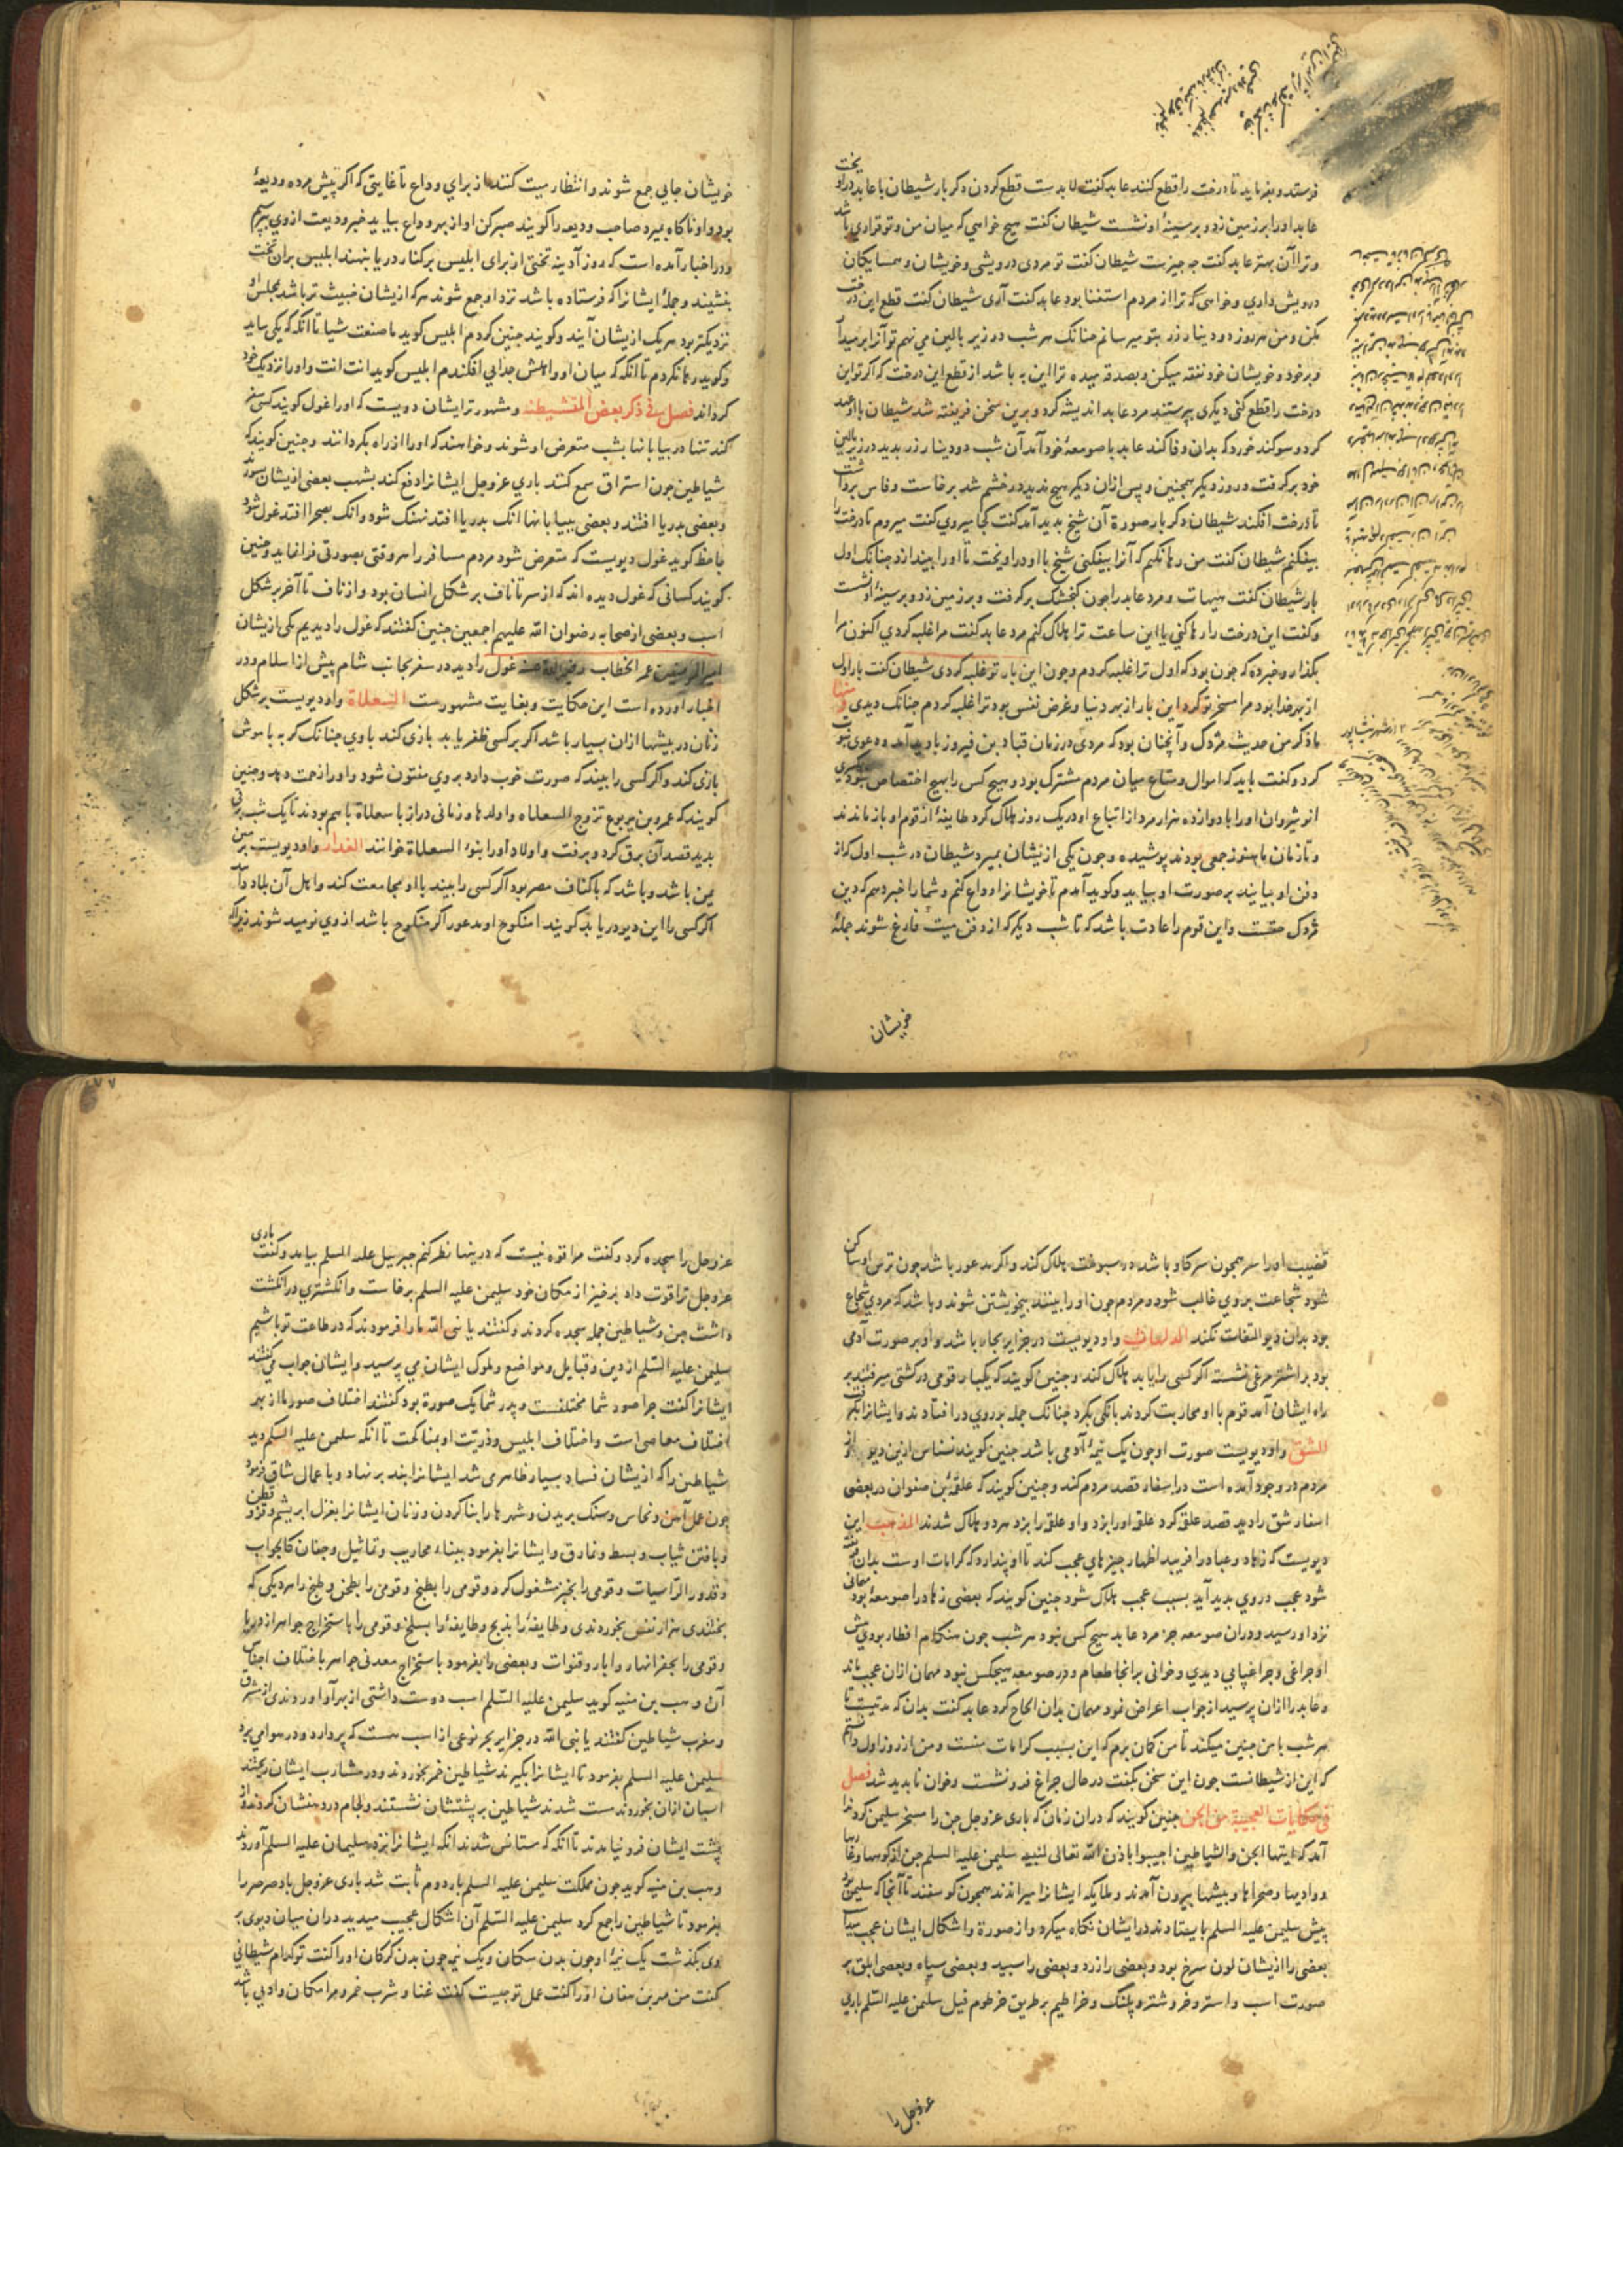 فرستد و بفرماید تا درخت را قطع کنند عابد کفت لابدست قطع کردن دکر بار شیطان با عابد درآویخت
عابد او را بر زمین زد و بر سینهٔ او نشست شیطان کفت هیچ خواهی که میان من و تو قراری باشد
و ترا آن بهتر عابد کفت چه چیزست شیطان کفت تو مردی درویشی و خویشان و همسایکان
درویش داری و خواهی که ترا از مردم استغنا بود عابد کفت آری شیطان کفت قطع این درخت
مکن و من هر روز دو دینار زر بتو میرسانم چنانک هر شب در زیر بالین می نهم تو آنرا برمیدار
و بر خود و خویشان خود نفقه میکن و بصدقه میده ترا این به باشد از قطع این درخت که اکر تو این
درخت را قطع کنی دیکری پرستند مرد عابد اندیشه کرد و برین سخن فریفته شد شیطان با او عهد
کرد و سوکند خورد که بدان وفا کند عابد با صومعهٔ خود آمد آن شب دو دینار زر بدید در زیر بالین
خود برکرفت و روز دیکر همچنین و پس ازان دیکر هیچ ندید در خشم شد برخاست و فاس برداشت
تا درخت افکند شیطان دکر بار صورة آن شیخ بدید آمد کفت کجا میروی کفت میروم تا درخت را
بیفکنم شیطان کفت من رها نکنم که آنرا بیفکنی شیخ با او در اویخت تا او را بیندازد چنانک اول
بار شیطان کفت هیهات و مرد عابد را چون کنجشک برکرفت و بر زمین زد و بر سینهٔ او نشست
و کفت این درخت را رها کنی یا این ساعت ترا هلاک کنم مرد عابد کفت مرا غلبه کردی اکنون مرا
بکذار و خبر ده که چون بود که اول ترا غلبه کردم و چون این بار تو غلبه کردی شیطان کفت بار اول
از بهر خدا بود مرا مسخر تو کرد این بار از بهر دنیا و غرض نفس بود ترا غلبه کردم چنانک دیدی و منها
ما ذکر من حدیث مزدک و آنچنان بود که مردی در زمان قباد بن فیروز بادید آمد و دعوی نبوت
کرد و کفت باید که اموال و متاع میان مردم مشترک بود و هیچ کس را بهیچ اختصاص نبود کسری
انوشروان او را با دوازده هزار مرد از اتباع او در یک روز هلاک کرد طایفهٔ از قوم او باز ماندند
و تا زمان ما هنوز جمعی بودند پوشیده و چون یکی ازیشان بمیرد شیطان در شب اول که از
دفن او بیایند بر صورت او بیاید و کوید آمدم تا خویشانرا وداع کنم و شما را خبر دهم که دین
مزدک حقست و این قوم را عادت باشد که تا شب دیکر که از دفن میت فارغ شوند جملهٔ
خویشان
خویشان جایی جمع شوند و انتظار میت کنند از برای وداع تا غایتی که اکر پیش مرده ودیعهٔ
بود و او ناکاه بمیرد صاحب ودیعه را کویند صبر کن او از بهر وداع بیاید خبر ودیعت از وی بپرسیم
و در اخبار آمده است که روز آدینه تختی از برای ابلیس بر کنار دریا بنهند ابلیس بران تخت
بنشیند و جملهٔ ایشانرا که فرستاده باشد نزد او جمع شوند هرکه ازیشان خبیث تر باشد بمجلس او
نزدیکتر بود هریک ازیشان آیند و کویند چنین کردم ابلیس کوید ما صنعت شیا تا آنکه که یکی بیاید
و کوید رها نکردم تا آنکه که میان او و اهلش جدایی افکندم ابلیس کوید انت انت و او را نزدیک خود
کرداند فصل فی ذکر بعض المتشیطنه و مشهورتر ایشان دویست که او را غول کویند کسی سفر
کند تنها در بیابانها بشب متعرض او شوند و خواهند که او را از راه بکردانند و چنین کویند که
شیاطین چون استراق سمع کنند باری عز و جل ایشانرا دفع کند بشهب بعضی ازیشان بسوزند
و بعضی بدریا افتند و بعضی ببیابانها آنک بدریا افتد نهنک شود و آنک بصحرا افتد غول شود
جاحظ کوید غول دیویست که متعرض شود مردم مسافر را هر وقتی بصورتی فرا نماید و چنین
کویند کسانی که غول دیده اند که از سر تا ناف بر شکل انسان بود و از ناف تا آخر بر شکل
اسب و بعضی از صحابه رضوان الله علیهم اجمعین چنین کفتند که غول را دیدیم یکی ازیشان
امیر المومنین عمر الخطاب رضی الله عنه غول را دید در سفر بجانب شام پیش از اسلام و در
اخبار آورده است این حکایت و بغایت مشهورست السعلاة و او دیویست بر شکل
زنان در بیشها ازان بسیار باشد اکر بر کسی ظفر یابد بازی کند با وی چنانک کربه با موش
بازی کند و اکر کسی را بیند که صورت خوب دارد بر وی مفتون شود و او را زحمت دهد و چنین
کویند که عمرو بن یربوع تزوج السعلاه و اولدها و زمانی دراز با سعلاة باهم بودند تا یک شب برقی
بدید قصد آن برق کرد و برفت و اولاد او را بنو السعلاة خوانند الغدار و او دیویست بزمین
یمن باشد و باشد که باکناف مصر بود اکر کسی را بیند با او مجامعت کند و اهل آن بلاد
اکر کسی را این دیو دریابد کویند امنکوح او مدعور اکر منکوح باشد از وی نومید شوند زیراکه
قضیب او را سر همچون سر کاو باشد در سوخت هلاک کند و اکر مدعور باشد چون ترس او ساکن
شود شجاعت بر وی غالب شود و مردم چون او را بینند بیخویشتن شوند و باشد که مردی شجاع
بود بدان دیو التفات نکند الدلهاث و او دیویست در جزایر بحار باشد و او بر صورت آدمی
بود بر اشتر مرغی نشسته اکر کسی را بیابد هلاک کند و چنین کویند که یکبار قومی در کشتی میرفتند بر
راه ایشان آمد قوم با او محاربت کردند بانکی بکرد چنانک جمله بر روی در افتادند و ایشانرا بکرفت
الشق و او دیویست صورت او چون یک نیمهٔ آدمی باشد چنین کویند نسناس ازین دیو و از
مردم در وجود آمده است در اسفار قصد مردم کند و چنین کویند که علقمة بن صفوان در بعضی
اسفار شق را دید قصد علقمه کرد علقمه او را بزد و او علقمه را بزد هر دو هلاک شدند المذهب این
دیویست که زهاد و عباد را فریبد اظهار چیزهای عجب کند تا او پندارد که کرامات اوست بدان فریفته
شود عجب در وی بدید آید بسبب عجب هلاک شود چنین کویند که بعضی زهاد را صومعهٔ بود مهمانی
نزد او رسید و دران صومعه جز مرد عابد هیچ کس نبود هر شب چون هنکام افطار بودی پیش
او چراغی و چراغپایی دیدی و خوانی بر انجا طعام و در صومعه هیچکس نبود مهمان ازان عجب ماند
و عابد را ازان پرسید از جواب اعراض نمود مهمان بدان الحاح کرد عابد کفت بدان که مدتیست تا
هر شب با من چنین میکند تا من کمان برم که این بسبب کرامات منست و من از روز اول دانستم
که این از شیطانست چون این سخن بکفت در حال چراغ فرو نشست و خوان نابدید شد فصل
فی حکایات العجیبة من الجن چنین کویند که دران زمان که باری عز و جل جن را مسخر سلیمن کرد ندا
آمد که ایتها الجن والشیاطین اجیبوا باذن الله تعالی لنبیه سلیمن علیه السلم جن از کوهها و غارها
و وادیها و صحراها و بیشها بیرون آمدند و ملایکه ایشانرا میراندند همچون کوسفند تا آنجا که سلیمن بود
پیش سلیمن علیه السلم بایستادند در ایشان نکاه میکرد و از صورة و اشکال ایشان عجب میداشت
بعضی را ازیشان لون سرخ بود و بعضی را زرد و بعضی را سپید و بعضی سیاه و بعضی ابلق بر
صورت اسب و استر و خر و شتر و پلنک و خراطیم بر طریق خرطوم فیل سلیمن علیه السلم باری
عز و جل را
عز و جل را سجده کرد و کفت مرا قوه نیست که درینها نظر کنم جبرییل علیه السلم بیامد و کفت باری
عز و جل ترا قوت داد برخیز از مکان خود سلیمن علیه السلم برخاست و انکشتری در انکشت
داشت جن و شیاطین جمله سجده کردند و کفتند یا نبی الله ما را فرمودند که در طاعت تو باشیم
سلیمن علیه السلم از دین و قبایل و مواضع و ملوک ایشان می پرسید و ایشان جواب می کفتند
ایشانرا کفت چرا صور شما مختلفست و پدر شما یک صورة بود کفتند اختلاف صور ما از بهر
اختلاف معاصی است و اختلاف ابلیس و ذریت او بمناکحت تا انکه سلیمن علیه السلم دید
شیاطین را که ازیشان فساد بسیار ظاهر می شد ایشانرا بند بر نهاد و باعمال شاق فرمود
چون عمل آهن و نحاس و سنک بریدن و شهرها را بنا کردن و زنان ایشانرا بغزل ابریشم و قز و قطن
و بافتن ثیاب و بسط و نمارق و ایشانرا بفرمود ببناء محاریب و تماثیل و جفان کالجواب
و قدور الراسیات و قومی را بخبز مشغول کرد و قومی را بطبخ و قومی را بطحن و طبخ را هر دیکی که
بپختندی هزار نفس بخوردندی و طایفهٔ را بذبح و طایفهٔ را بسلخ و قومی را باستخراج جواهر از دریا
و قومی را بحفر انهار و ابار و قنوات و بعضی را بفرمود باستخراج معدنی جواهر باختلاف اجناس
آن وهب بن منبه کوید سلیمن علیه السلم اسب دوست داشتی از بهر او آوردندی از مشرق
و مغرب شیاطین کفتند یا نبی الله در جزایر بحر نوعی از اسب هست که پر دارد و در هوا می پرد
سلیمن علیه السلم بفرمود تا ایشانرا بکیرند شیاطین خمر بخوردند و در مشارب ایشان ریختند
اسبان ازان بخوردند مست شدند شیاطین بر پشتشان نشستند و لجام در دهنشان کردند و از
پشت ایشان فرو نیامدند تا آنکه که مستانس شدند انکه ایشانرا نزد سلیمان علیه السلم آوردند
وهب بن منبه کوید چون مملکت سلیمن علیه السلم بار دوم ثابت شد باری عز و جل باد صرصر را
بفرمود تا شیاطین را جمع کرد سلیمن علیه السلم آن اشکال عجیب میدید دران میان دیوی بر
وی بکذشت یک نیمهٔ او چون بدن سکان و یک نیمه چون بدن کرکان او را کفت تو کدام شیطانی
کفت من مهر بن هفان او را کفت عمل تو چیست کفت غنا و شرب خمر و مرا مکان وادیی باشد